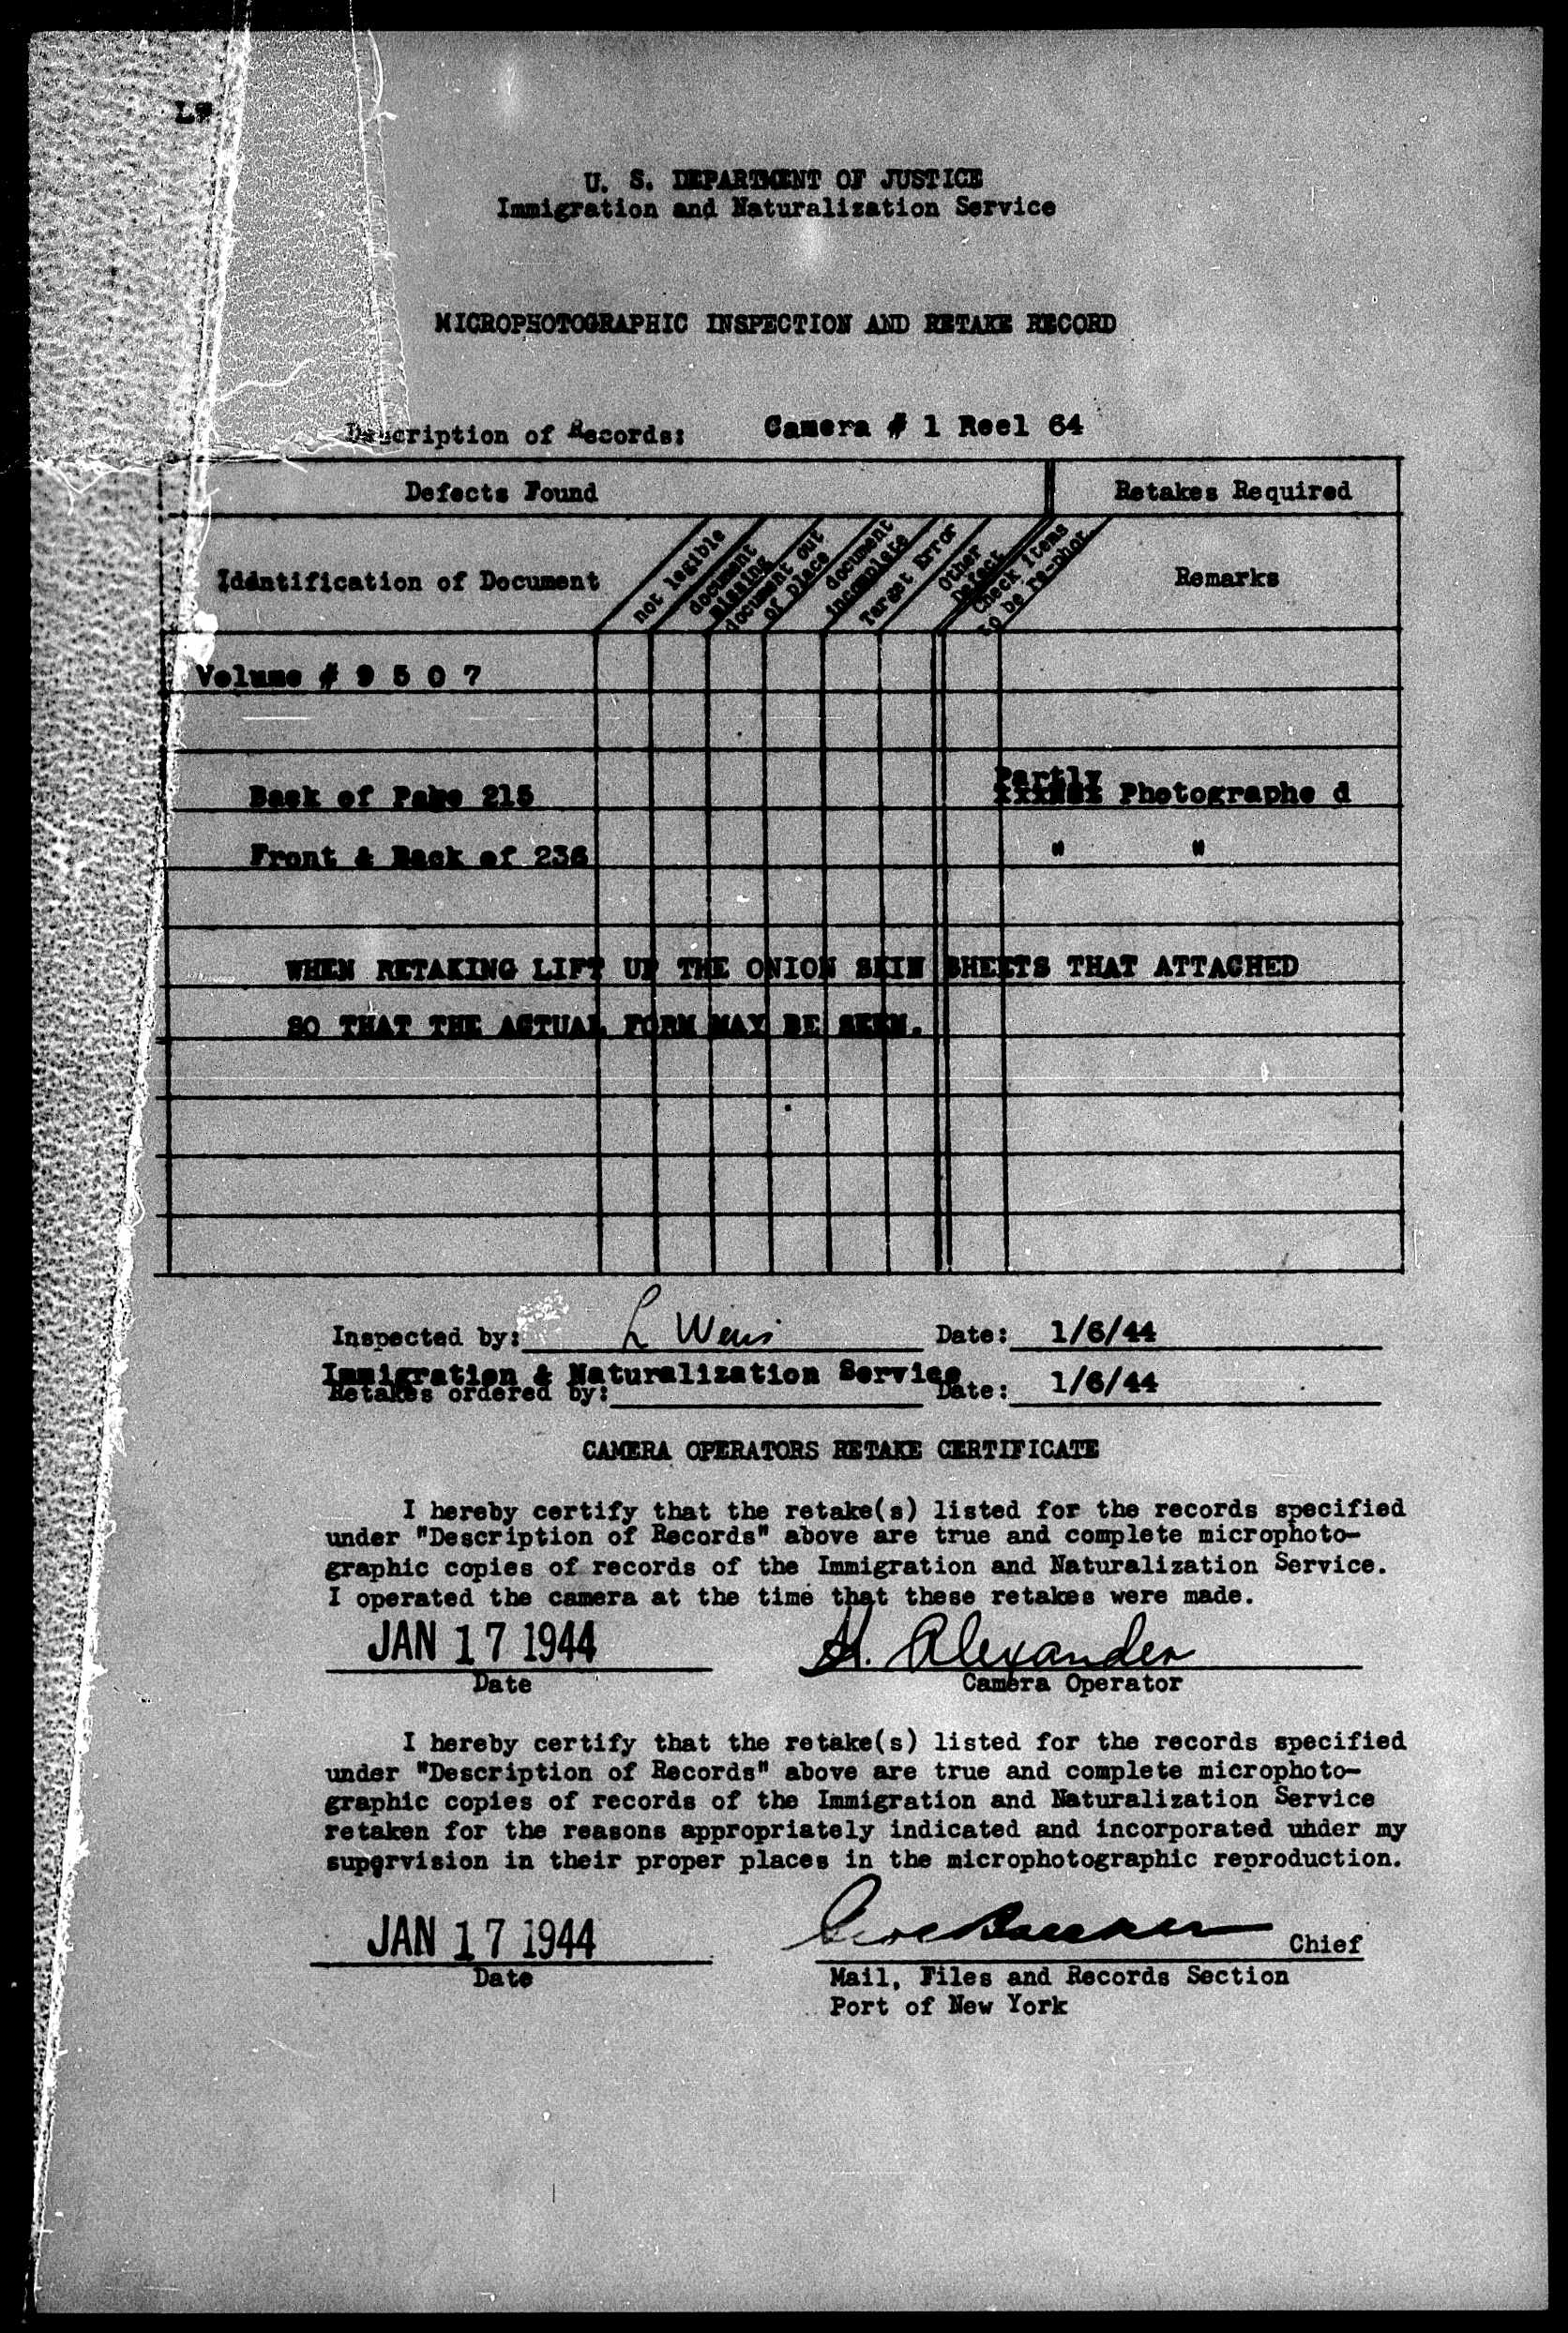 U. S. DEPARTMENT OF JUSTICE
Immigration and Naturalization Service
MICROPHOTOGRAPHIC INSPECTION AND RETAKE RECORD
Description of Records: Camera # 1 Reel 64
Defects Found Retakes Required
Identification of Document
not legible
document missing
document out of place
document incomplete
Target Error
Other Defect
Check items to be re-phot.
Remarks
Volume # 9 5 0 7
Back of Page 215 Partly Photographe d
Front & Back of 236 " "
WHEN RETAKING LIFT UP THE ONION SKIN SHEETS THAT ATTACHED
SO THAT THE ACTUAL FORM MAY BE SEEN.
Inspected by: L Weis Date: 1/6/44
Immigration & Naturalization Service
Retakes ordered by: Date: 1/6/44
CAMERA OPERATORS RETAKE CERTIFICATE
I hereby certify that the retake(s) listed for the records specified
under "Description of Records" above are true and complete microphoto-
graphic copies of records of the Immigration and Naturalization Service.
I operated the camera at the time that these retakes were made.
JAN 17 1944 H. Alexander
Date Camera Operator
I hereby certify that the retake(s) listed for the records specified
under "Description of Records" above are true and complete microphoto-
graphic copies of records of the Immigration and Naturalization Service
retaken for the reasons appropriately indicated and incorporated uhder my
supervision in their proper places in the microphotographic reproduction.
JAN 17 1944 Chief
Date Mail, Files and Records Section
Port of New York